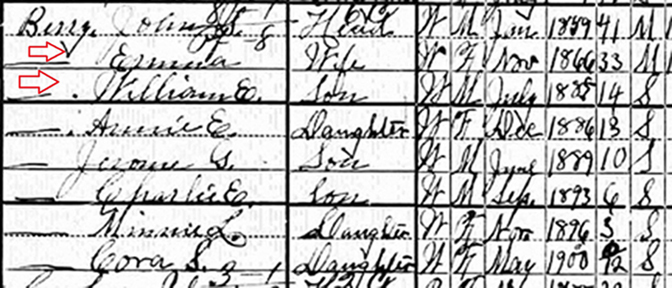 Berry, John S. Head W M Jan 1859 41 M
— Emma Wife W F Nov 1866 33 M
— William E. Son W M July 1885 14 S
— Annie E. Daughter W F Dec 1886 13 S
— Jerome G. Son W M June 1889 10 S
— Charlie E. Son W M Sep. 1893 6 S
— Minnie L. Daughter W F Nov 1896 3 S
— Cora S. Daughter W F May 1900 /12 S